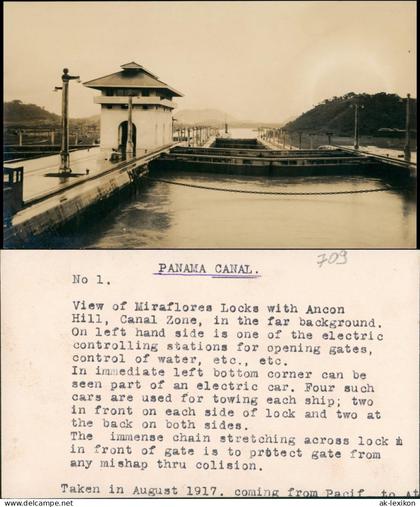 709
PANAMA CANAL.
No 1.
View of Miraflores Locks with Ancon
Hill, Canal Zone, in the far background.
On left hand side is one of the electric
controlling stations for opening gates,
control of water, etc., etc.
In immediate left bottom corner can be
seen part of an electric car. Four such
cars are used for towing each ship; two
in front on each side of lock and two at
the back on both sides.
The immense chain stretching across lock
in front of gate is to protect gate from
any mishap thru colision.
Taken in August 1917. coming from Pacif to At
www.delcampe.net
ak-lexikon